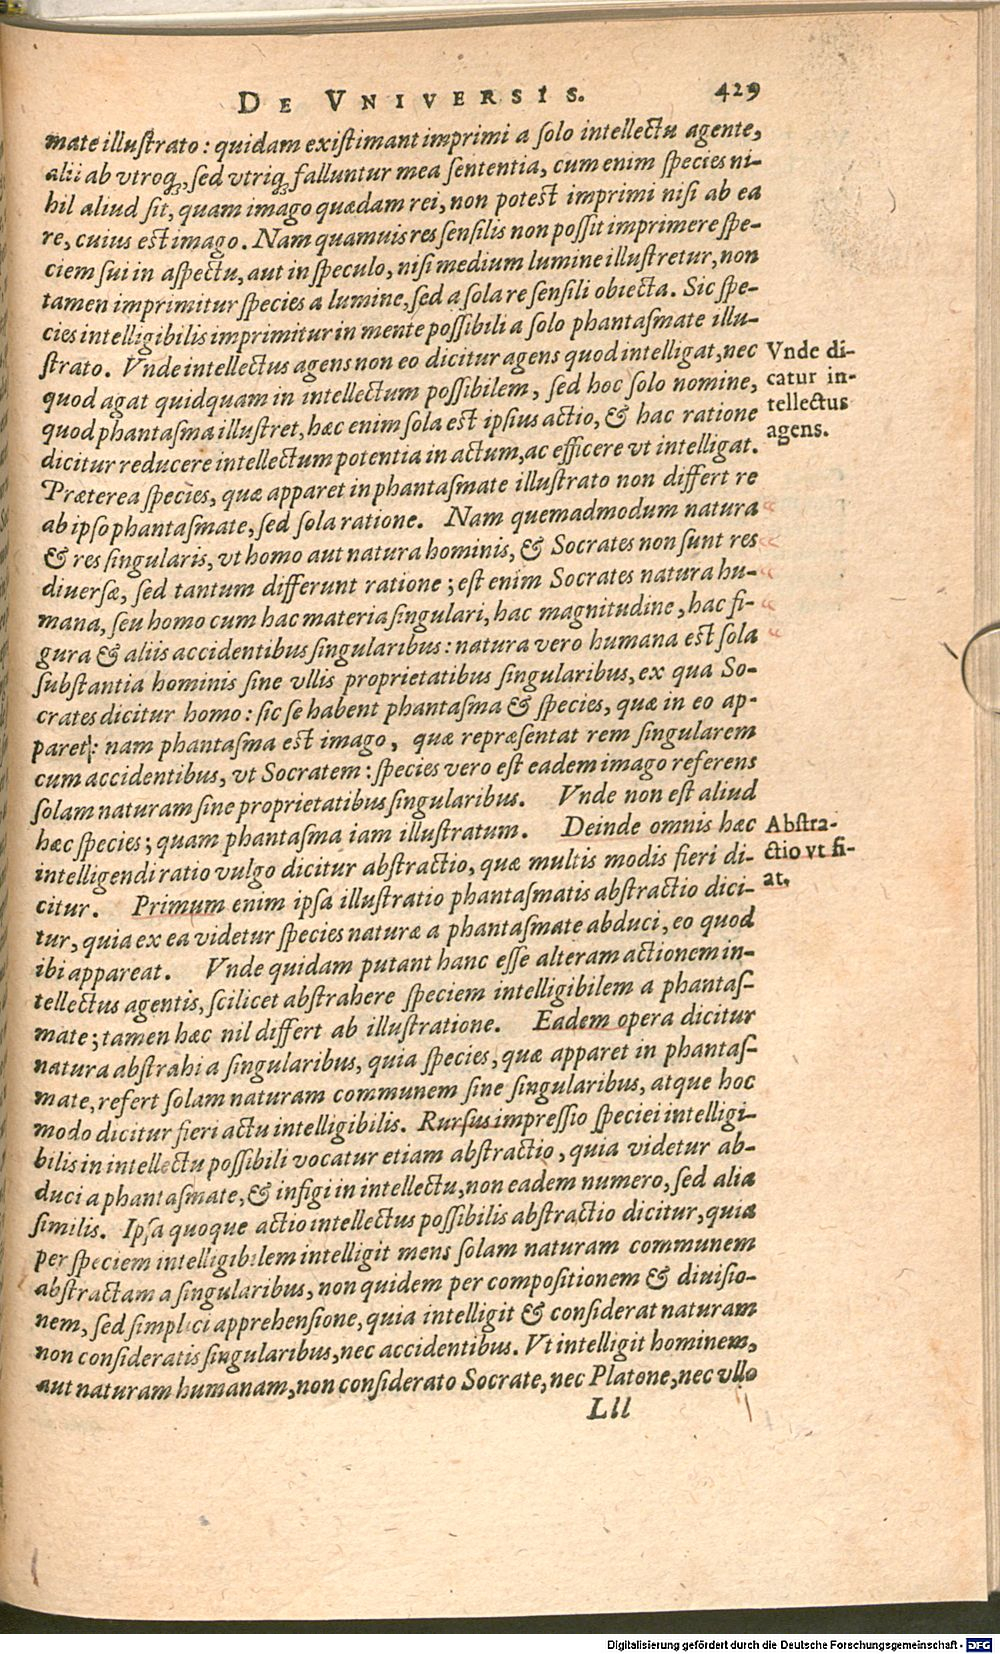 DE VNIVERSIS. 429
mate illustrato: quidam existimant imprimi a solo intellectu agente,
alii ab vtroq;, sed vtriq; falluntur mea sententia, cum enim species ni-
hil aliud sit, quam imago quædam rei, non potest imprimi nisi ab ea
re, cuius est imago. Nam quamuis res sensilis non possit imprimere spe-
ciem sui in aspectu, aut in speculo, nisi medium lumine illustretur, non
tamen imprimitur species a lumine, sed a sola re sensili obiecta. Sic spe-
cies intelligibilis imprimitur in mente possibili a solo phantasmate illu-
strato. Vnde intellectus agens non eo dicitur agens quod intelligat, nec
quod agat quidquam in intellectum possibilem, sed hoc solo nomine,
quod phantasma illustret, hæc enim sola est ipsius actio, & hac ratione
dicitur reducere intellectum potentia in actum, ac efficere vt intelligat.
Vnde di-
catur in-
tellectus
agens.
Præterea species, quæ apparet in phantasmate illustrato non differt re
ab ipso phantasmate, sed sola ratione. Nam quemadmodum natura
& res singularis, vt homo aut natura hominis, & Socrates non sunt res
diuersæ, sed tantum differunt ratione; est enim Socrates natura hu-
mana, seu homo cum hac materia singulari, hac magnitudine, hac fi-
gura & aliis accidentibus singularibus: natura vero humana est sola
substantia hominis sine vllis proprietatibus singularibus, ex qua So-
crates dicitur homo: sic se habent phantasma & species, quæ in eo ap-
paret: nam phantasma est imago, quæ repræsentat rem singularem
cum accidentibus, vt Socratem: species vero est eadem imago referens
solam naturam sine proprietatibus singularibus. Vnde non est aliud
hæc species; quam phantasma iam illustratum. Deinde omnis hæc
intelligendi ratio vulgo dicitur abstractio, quæ multis modis fieri di-
citur. Primum enim ipsa illustratio phantasmatis abstractio dici-
Abstra-
ctio vt fi-
at.
tur, quia ex ea videtur species naturæ a phantasmate abduci, eo quod
ibi appareat. Vnde quidam putant hanc esse alteram actionem in-
tellectus agentis, scilicet abstrahere speciem intelligibilem a phantas-
mate; tamen hæc nil differt ab illustratione. Eadem opera dicitur
natura abstrahi a singularibus, quia species, quæ apparet in phantas-
mate, refert solam naturam communem sine singularibus, atque hoc
modo dicitur fieri actu intelligibilis. Rursus impressio speciei intelligi-
bilis in intellectu possibili vocatur etiam abstractio, quia videtur ab-
duci a phantasmate, & infigi in intellectu, non eadem numero, sed alia
similis. Ipsa quoque actio intellectus possibilis abstractio dicitur, quia
per speciem intelligibilem intelligit mens solam naturam communem
abstractam a singularibus, non quidem per compositionem & diuisio-
nem, sed simplici apprehensione, quia intelligit & considerat naturam
non consideratis singularibus, nec accidentibus. Vt intelligit hominem,
aut naturam humanam, non considerato Socrate, nec Platone, nec vllo
Lll
Digitalisierung gefördert durch die Deutsche Forschungsgemeinschaft - DFG